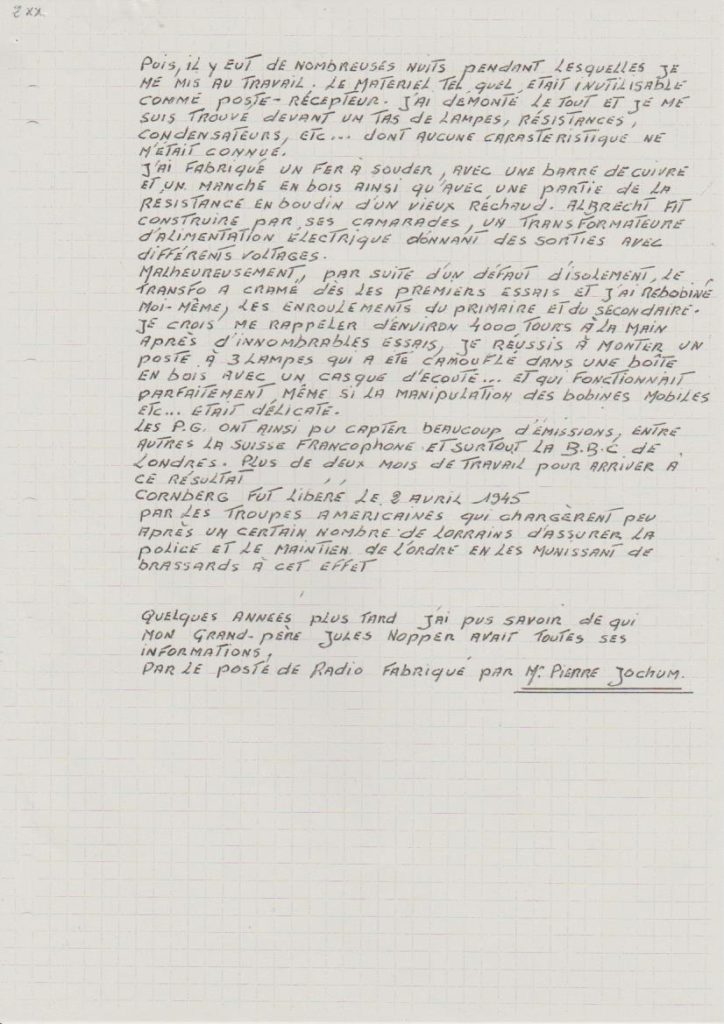 2xx
PUIS, IL Y EUT DE NOMBREUSES NUITS PENDANT LESQUELLES JE
ME MIS AU TRAVAIL. LE MATERIEL TEL QUEL ETAIT INUTILISABLE
COMME POSTE-RÉCEPTEUR. J'AI DEMONTÉ LE TOUT ET JE ME
SUIS TROUVE DEVANT UN TAS DE LAMPES, RÉSISTANCES,
CONDENSATEURS, ETC... DONT AUCUNE CARASTERISTIQUE NE
M'ETAIT CONNUE.
J'AI FABRIQUÉ UN FER À SOUDER, AVEC UNE BARRE DE CUIVRE
ET UN MANCHE EN BOIS AINSI QU'AVEC UNE PARTIE DE LA
RESISTANCE EN BOUDIN D'UN VIEUX RÉCHAUD. ALBRECHT FIT
CONSTRUIRE PAR SES CAMARADES, UN TRANSFORMATEURE
D'ALIMENTATION ÉLECTRIQUE DONNANT DES SORTIES AVEC
DIFFÉRENTS VOLTAGES.
MALHEUREUSEMENT, PAR SUITE D'UN DÉFAUT D'ISOLEMENT, LE
TRANSFO A CRAMÉ DÈS LES PREMIERS ESSAIS ET J'AI REBOBINÉ
MOI-MÊME, LES ENROULEMENTS DU PRIMAIRE ET DU SECONDAIRE.
JE CROIS ME RAPPELER D'ENVIRON 4000 TOURS À LA MAIN
APRÈS D'INNOMBRABLES ESSAIS, JE RÉUSSIS À MONTER UN
POSTE À 3 LAMPES QUI A ÉTÉ CAMOUFLÉ DANS UNE BOÎTE
EN BOIS AVEC UN CASQUE D'ECOUTE... ET QUI FONCTIONNAIT
PARFAITEMENT, MÊME SI LA MANIPULATION DES BOBINES MOBILES
ETC... ETAIT DÉLICATE.
LES P.G. ONT AINSI PU CAPTER BEAUCOUP D'ÉMISSIONS, ENTRE
AUTRES LA SUISSE FRANCOPHONE ET SURTOUT LA B.B.C. DE
LONDRES. PLUS DE DEUX MOIS DE TRAVAIL POUR ARRIVER A
CE RÉSULTAT
CORNBERG FUT LIBERÉ LE 2 AVRIL 1945
PAR LES TROUPES AMERICAINES QUI CHARGÈRENT PEU
APRÈS UN CERTAIN NOMBRE DE LORRAINS D'ASSURER LA
POLICE ET LE MAINTIEN DE L'ORDRE EN LES MUNISSANT DE
BRASSARDS À CET EFFET
QUELQUES ANNEES PLUS TARD J'AI PUS SAVOIR DE QUI
MON GRAND-PÈRE JULES NOPPER AVAIT TOUTES SES
INFORMATIONS,
PAR LE POSTE DE RADIO FABRIQUÉ PAR Mr PIERRE JOCHUM.